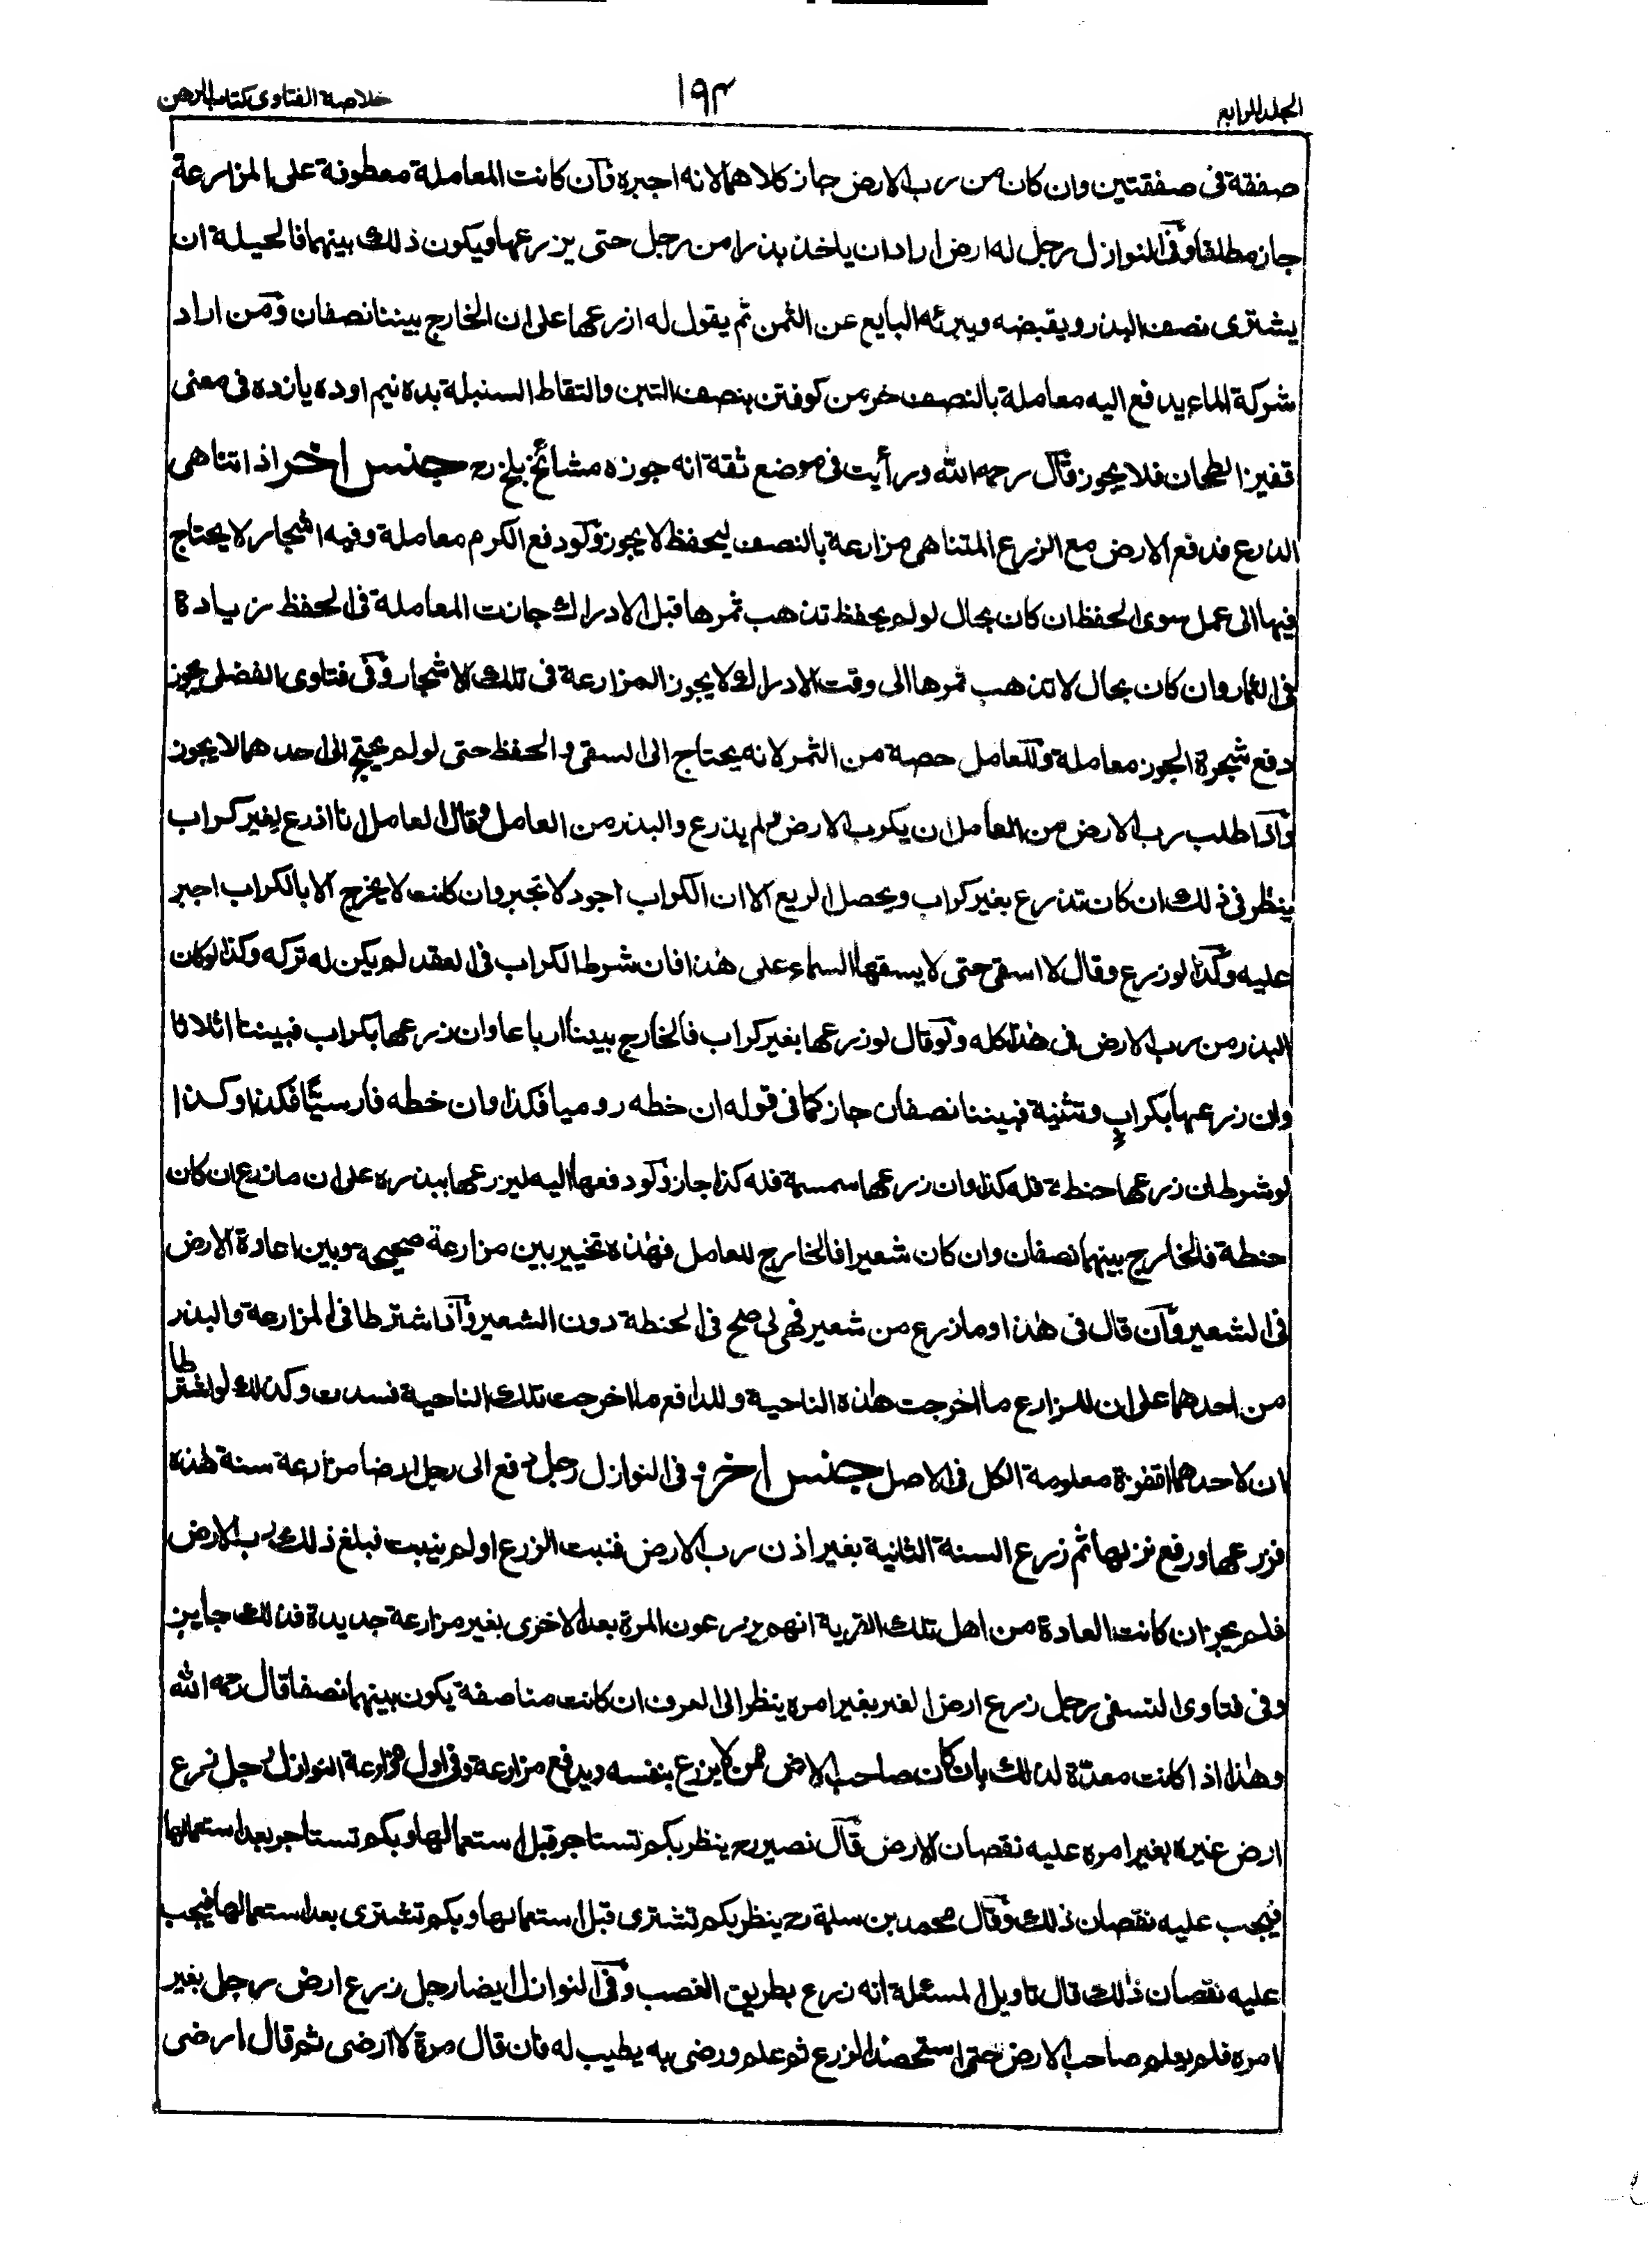 الجلد الرابع
١٩٣
خلاصة الفتاوى كتاب الرهن
صفقة فى صفقتين وان كان من رب الارض جاز كلاهما لانه اجيره وان كانت المعاملة معطوفة على المزارعة
جاز مطلقا وفى النوازل رجل له ارض اراد ان ياخذ بذرا من رجل حتى يزرعها ويكون ذلك بينهما فالحيلة ان
يشترى نصف البذر ويقبضه ويبرئه البايع عن الثمن ثم يقول له ازرعها على ان الخارج بيننا نصفان ومن اراد
شركة الماء يدفع اليه معاملة بالنصف خرمن كوفتن بنصف التبن والتقاط السنبلة بده نيم او ده يازده فى معنى
قفيز الطحان فلا يجوز قال رحمه الله ورأيت فى موضع ثقة انه جوزه مشائخ بلخ رح جنس اخر اذا تناهى
الذرع فدفع الارض مع الزرع المتناهى مزارعة بالنصف ليحفظ لا يجوز ولو دفع الكرم معاملة وفيه اشجار لا يحتاج
فيها الى عمل سوى الحفظ ان كان بحال لو لم يحفظ تذهب ثمرها قبل الادراك جانت المعاملة فى الحفظ زيادة
فى الثمار وان كان بحال لا تذهب ثمرها الى وقت الادراك ولا يجوز المزارعة فى تلك الاشجار وفى فتاوى الفضلى يجوز
دفع شجرة الجوز معاملة وللعامل حصة من الثمر لانه يحتاج الى السقى والحفظ حتى لو لم يحتج الى احدهما لا يجوز
واذا طلب رب الارض من العامل ان يكرب الارض ولم يذرع والبذر من العامل وقال العامل انا اذرع بغير كراب
ينظر فى ذلك ان كان تذرع بغير كراب ويحصل الريع الا ان الكراب اجود لا تجبر وان كانت لا يخرج الا بالكراب اجبر
عليه وكذا لو زرع وقال لا اسقى حتى لا يسقها السماء على هذا فان شرط الكراب فى العقد لم يكن له تركه وكذا لو كان
البذر من رب الارض فى هذا كله ولو قال لو زرعها بغير كراب فالخارج بيننا ارباعا وان زرعها بكراب فبيننا اثلاثا
وان زرعها بكراب وتثنية فبيننا نصفان جاز كما فى قوله ان خطه روميا فكذا وان خطه فارسيًّا فكذا وكذا
لو شرط ان زرعها حنطة فله كذا وان زرعها سمسمة فله كذا جاز ولو دفعها اليه ليزرعها ببذره على ان ما زرع ان كان
حنطة فالخارج بينهما نصفان وان كان شعيرا فالخارج للعامل فهذه تخيير بين مزارعة صحيحة وبين اعادة الارض
فى الشعير وان قال فى هذا وما زرع من شعير فهو لى صح فى الحنطة دون الشعير واذا اشترطا فى المزارعة والبذر
من احدهما على ان للمزارع ما اخرجت هذه الناحية وللدافع ما اخرجت تلك الناحية فسدت وكذلك لو اشترطا
ان لاحدهما اقفزة معلومة الكل فى الاصل جنس اخر وفى النوازل رجل دفع الى رجل ارضا مزارعة سنة هذه
فزرعها ورفع نزلها ثم زرع السنة الثانية بغير اذن رب الارض فنبت الزرع او لم ينبت فبلغ ذلك رب الارض
فلم يجز ان كانت العادة من اهل تلك القرية انهم يزرعون المرة بعد الاخرى بغير مزارعة جديدة فذلك جايز
وفى فتاوى النسفى رجل زرع ارض الغير بغير امره ينظر الى العرف ان كانت مناصفة يكون بينهما نصفا قال رحمه الله
وهذا اذا كانت معدّة لذلك بان كان صاحب الارض ممن لا يزرع بنفسه ويدفع مزارعة وفى اول مزارعة النوازل رجل زرع
ارض غيره بغير امره عليه نقصان الارض قال نصير رح ينظر بكم تستاجر قبل استعمالها وبكم تستاجر بعد استعمالها
فيجب عليه نقصان ذلك وقال محمد بن سلمة رح ينظر بكم تشترى قبل استعمالها وبكم تشترى بعد استعمالها فيجب
عليه نقصان ذلك قال تاويل المسئلة انه زرع بطريق الغصب وفى النوازل ايضا رجل زرع ارض رجل بغير
امره فلم يعلم صاحب الارض حتى استحصد الزرع ثم علم ورضى به يطيب له فان قال مرة لا ارضى ثم قال ارضى